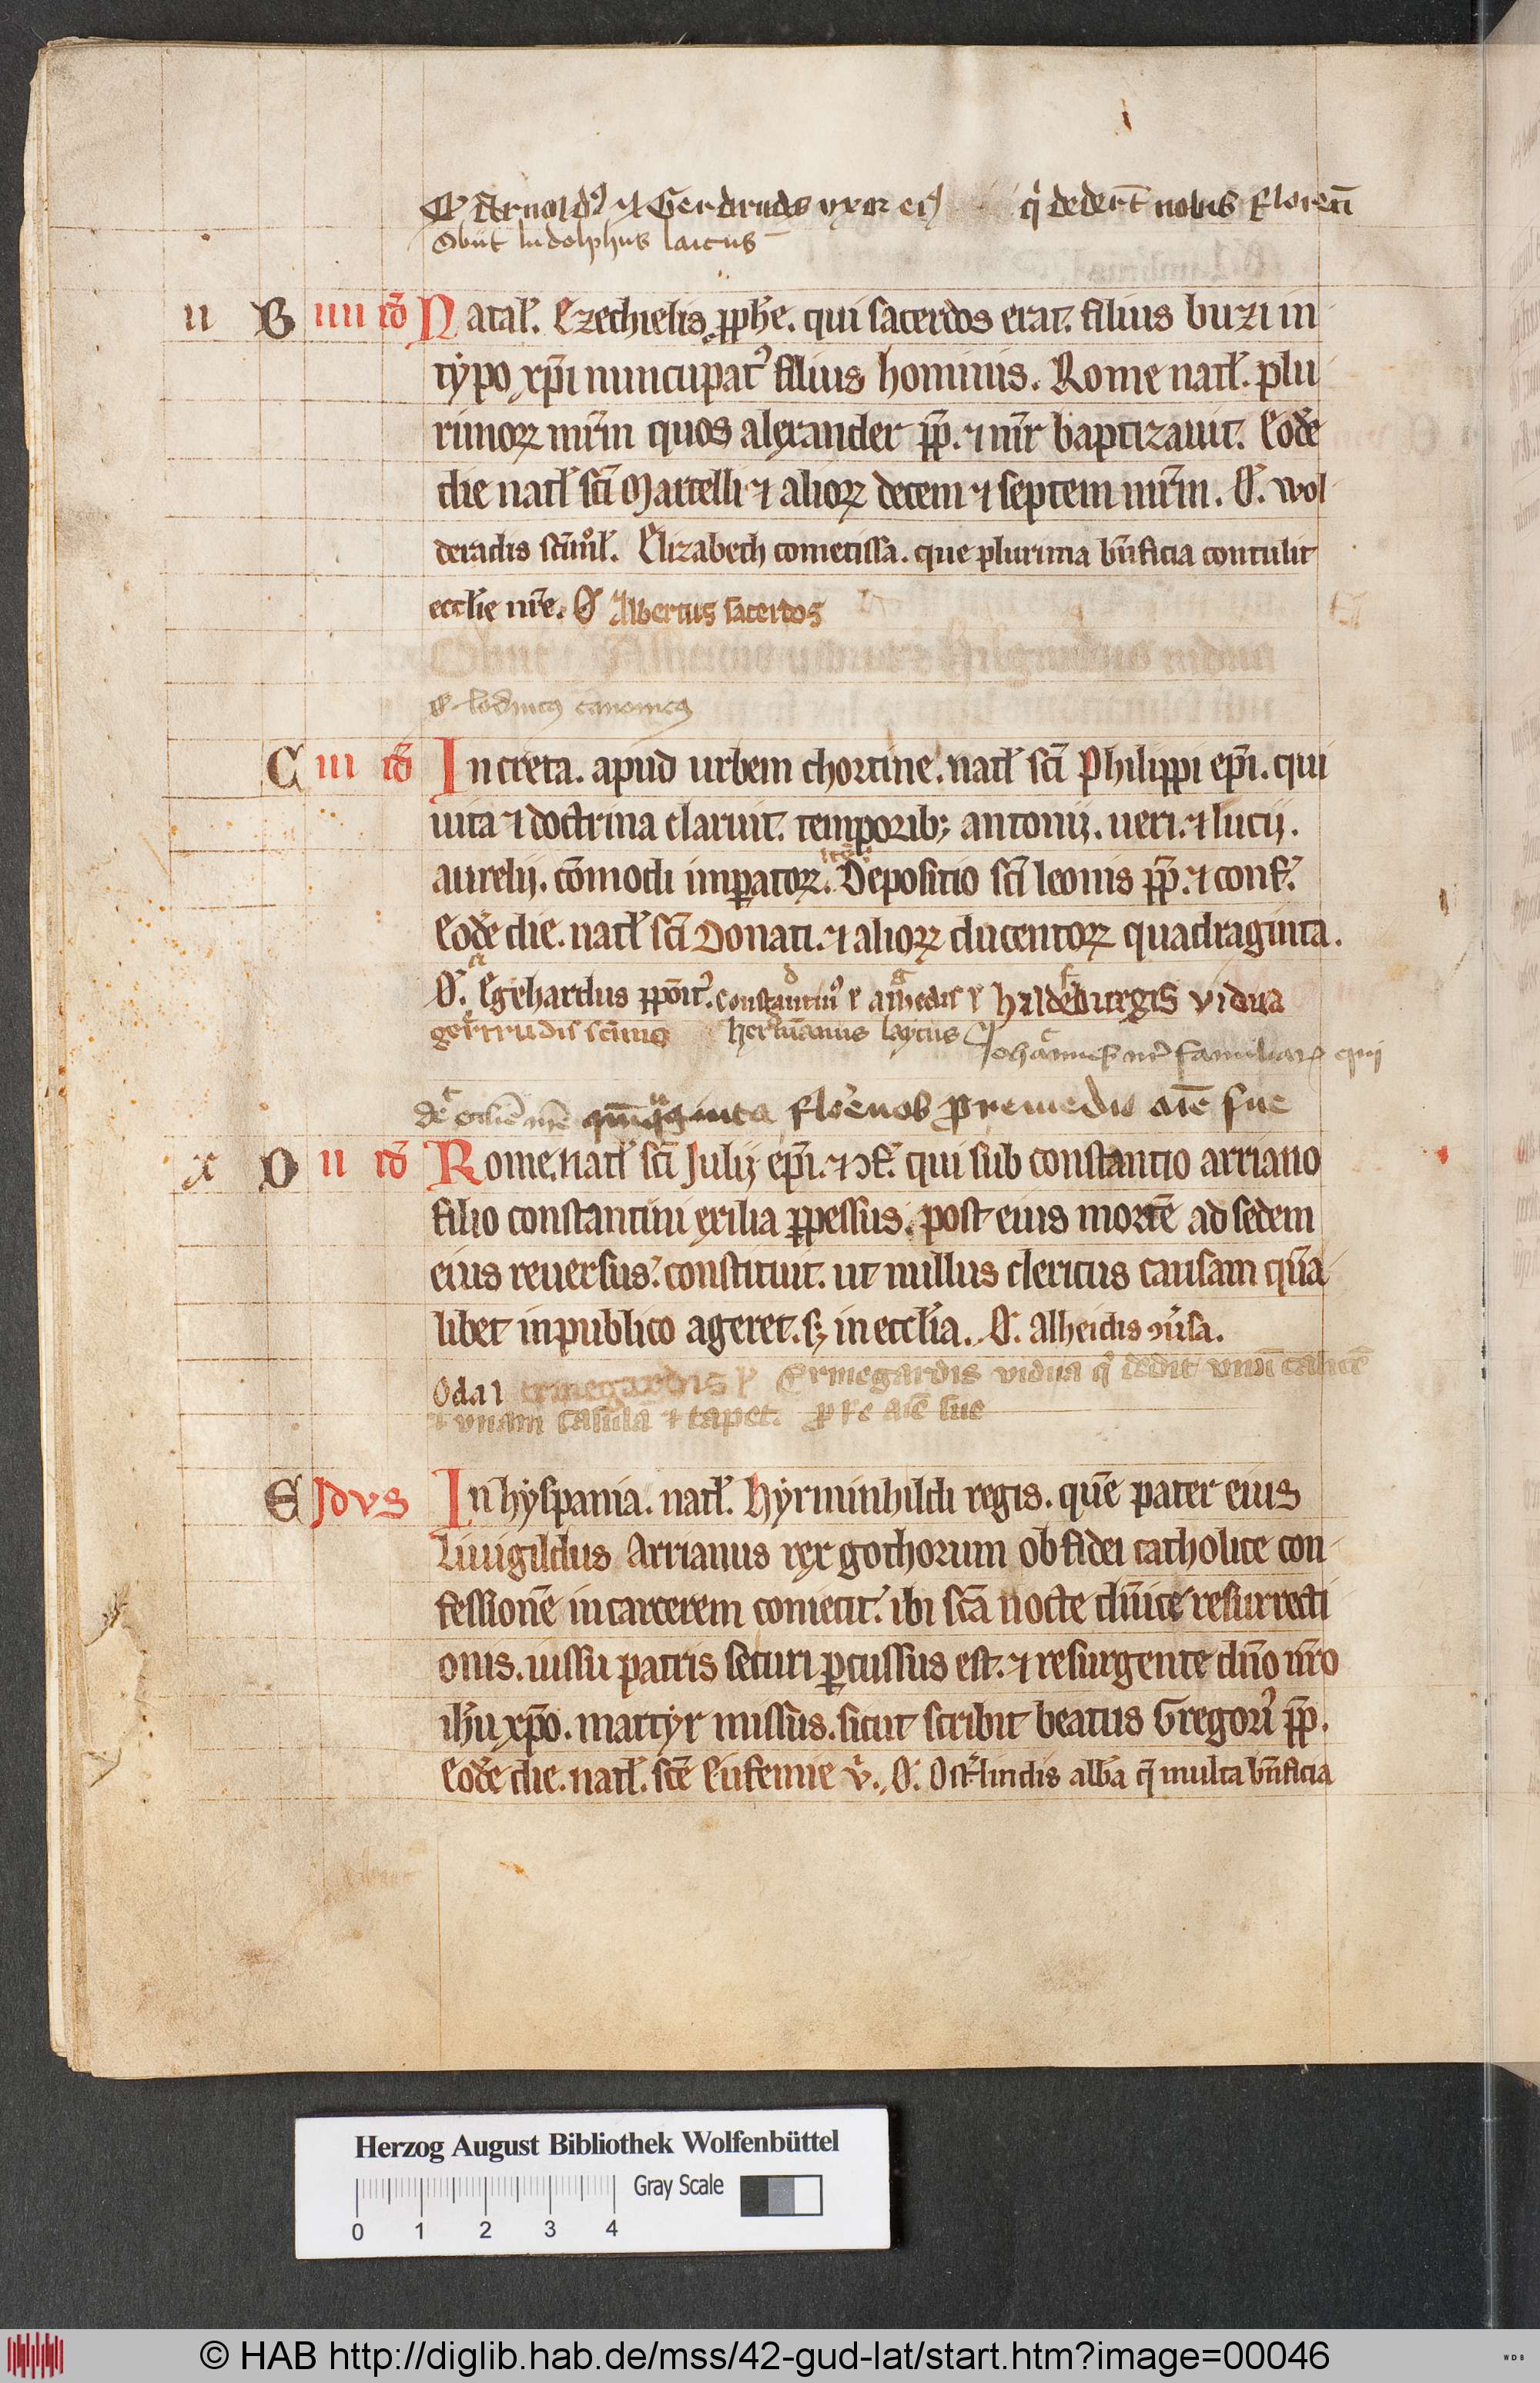 O' Arnold9 ⁊ Gerdrudis vxor ei9 q' dederūt nobis floren̄
Obiit ludolphus laicus
ii B iiii id' Natal'. Ezechielis pph̄e. qui sacerdos erat. filius buzi in
typo xp̄i nuncupat' filius hominis. Rome natl'. plu
rimoꝝ mr̄m quos alexander pp̄. ⁊ mr̄ baptizauit. Eodē
die natl' sc̄i Martelli ⁊ alioꝝ decem ⁊ septem mr̄m. O'. wol
deradis Elizabeth cometissa. que plurima bn̄ficia contulit
eccl'ie nr̄e. O' Albertus sacerdos
canonicus
C iii id' In creta. apud urbem chortine. natl' sc̄i Philippi ep̄i. qui
uita ⁊ doctrina claruit. temporib; antonij. ueri. ⁊ lucij.
aurelij. cōmodi imꝑatoꝝ. Depositio sc̄i leonis pp̄. ⁊ conf'.
Eodē die. natl' sc̄i Donati. ⁊ alioꝝ ducentoꝝ quadraginta.
O'. Egehardus ppōit'. constantin9 hildeburgis vidua
gertrudis hermannus laycus Johannes nr̄
florenos ꝓ remedio aīe sue
x D ii id' Rome. natl' sc̄i Julij ep̄i. ⁊ ꝯf'. qui sub constantio arriano
filio constantini exilia ꝑpessus. post eius mortē ad sedem
eius reuersus. constituit. ut nullus clericus causam quā
libet in publico ageret. s; in eccl'ia. O'. Alheidis
Oda l ermegardis Ermegardis vidua q' dedit vnū calicē
⁊ vnam casulā ⁊ tapet. aīe sue
E Idvs In hyspania. natl'. Hyrminhildi regis. quē pater eius
Liuigildus Arrianus rex gothorum ob fidei catholice con
fessionē in carcerem coniecit. ibi sc̄a nocte dn̄ice resurrecti
onis. iussu patris securi ꝑcussus est. ⁊ resurgente dn̄o nr̄o
ih'u xp̄o. martyr missus. sicut scribit beatus Gregori9 pp̄.
Eodē die. natl'. sc̄e Eufemie v'. O'. Ost'lindis alb̄a q̄ multa bn̄ficia
Herzog August Bibliothek Wolfenbüttel
Gray Scale
0 1 2 3 4
© HAB http://diglib.hab.de/mss/42-gud-lat/start.htm?image=00046
WDB